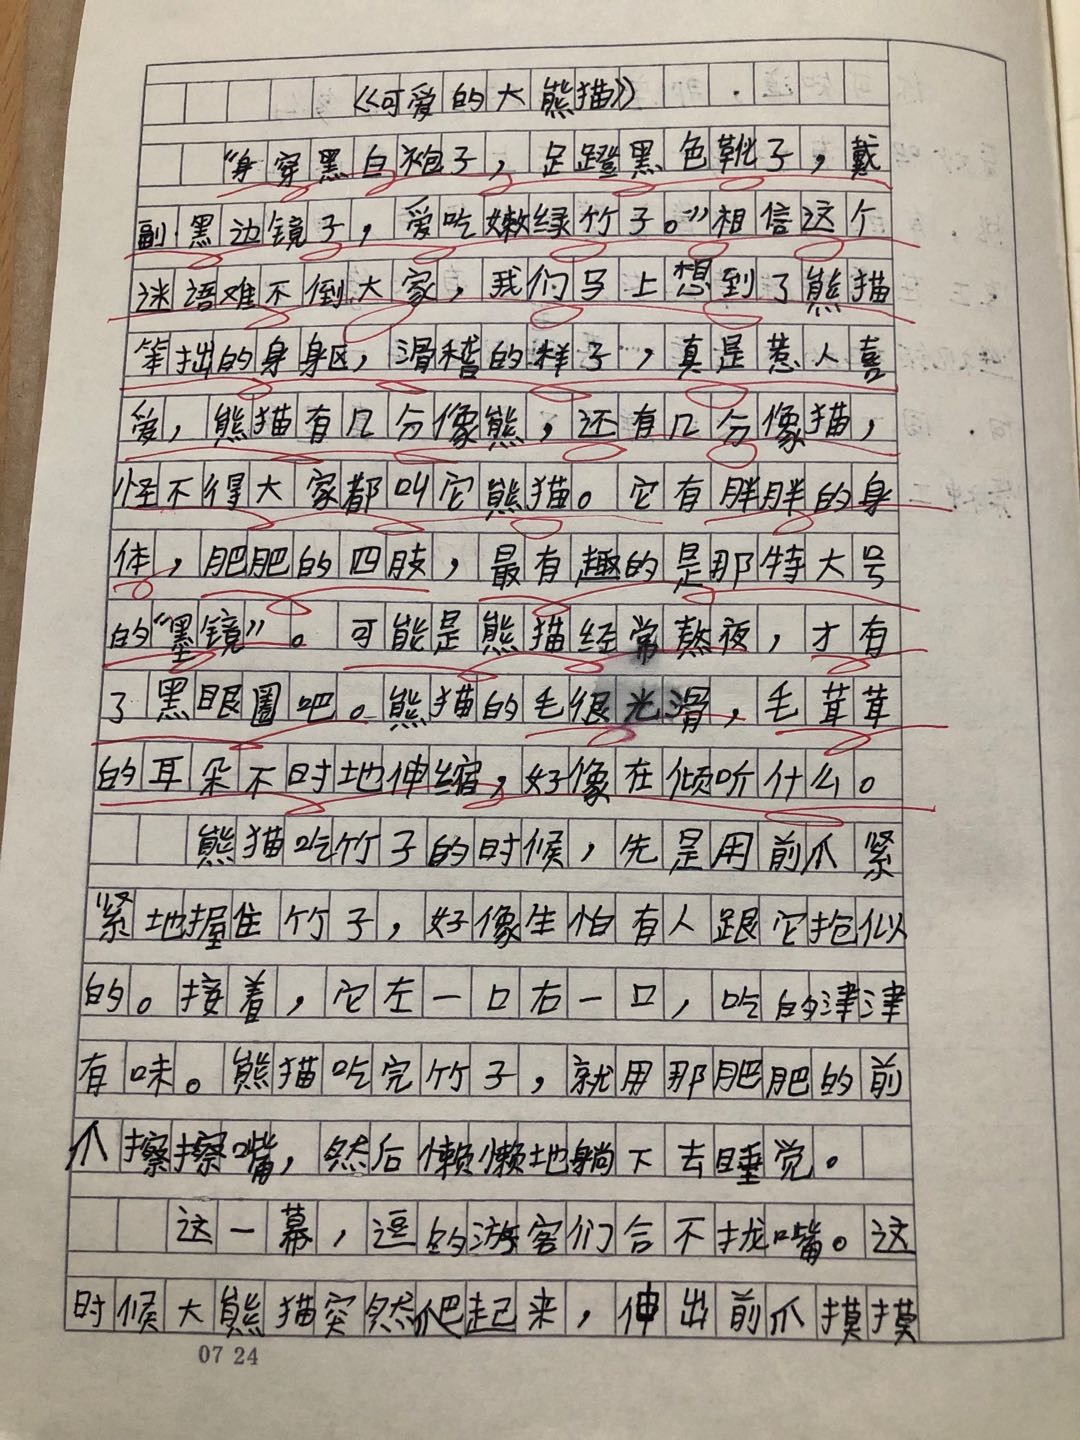 《可爱的大熊猫》
“身穿黑白袍子，足蹬黑色靴子，戴
副黑边镜子，爱吃嫩绿竹子。”相信这个
迷语难不倒大家，我们马上想到了熊猫
笨拙的身躯，滑稽的样子，真是惹人喜
爱，熊猫有几分像熊，还有几分像猫，
怪不得大家都叫它熊猫。它有胖胖的身
体，肥肥的四肢，最有趣的是那特大号
的“墨镜”。可能是熊猫经常熬夜，才有
了黑眼圈吧。熊猫的毛很光滑，毛茸茸
的耳朵不时地伸缩，好像在倾听什么。
熊猫吃竹子的时候，先是用前爪紧
紧地握住竹子，好像生怕有人跟它抢似
的。接着，它左一口右一口，吃的津津
有味。熊猫吃完竹子，就用那肥肥的前
爪擦擦嘴，然后懒懒地躺下去睡觉。
这一幕，逗的游客们合不拢嘴。这
时候大熊猫突然爬起来，伸出前爪摸摸
07 24